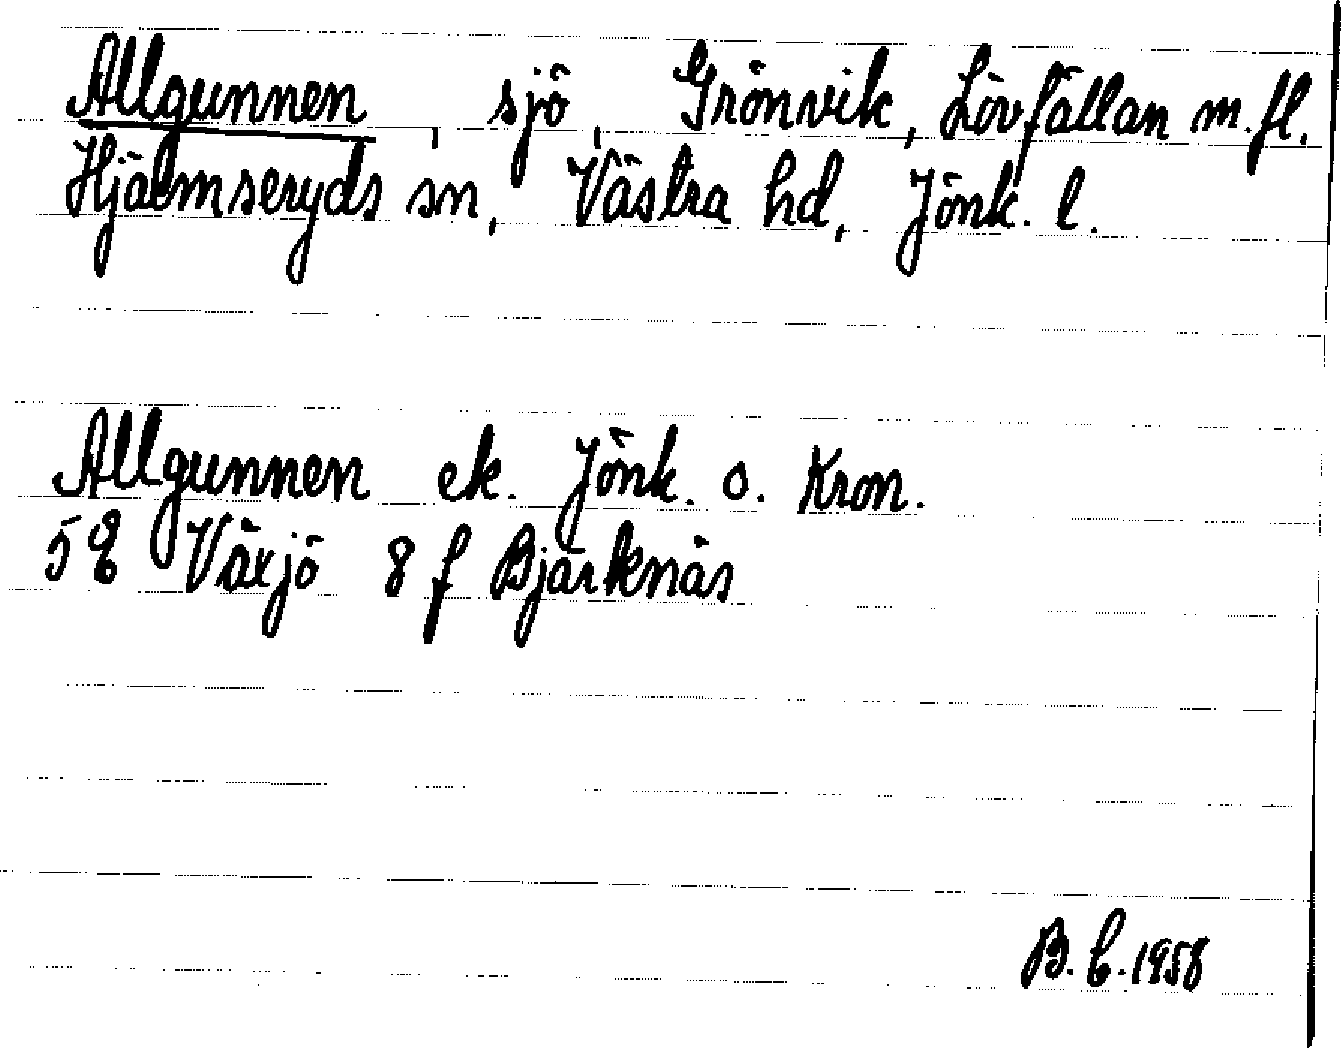 Allgunnen, sjö, Grönvik, Lövfällan m.fl.
Hjälmseryds sn, Västra hd, Jönk. l.
Allgunnen ek. Jönk. o. Kron.
5 E Växjö 8 f Bjärknäs
B. E. 1958